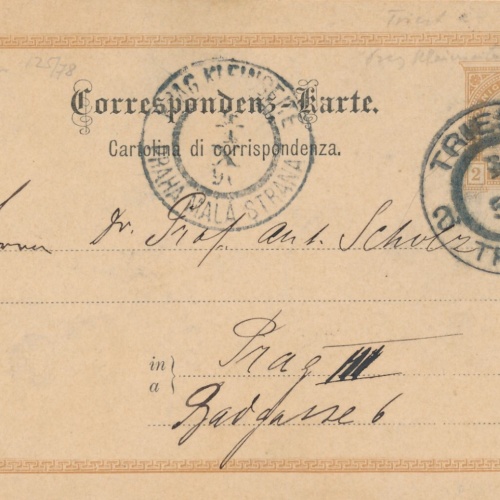 Triest 2
125/78
Prag Kleinseite
Correspondenz-Karte.
Cartolina di corrispondenza.
PRAG KLEINSEITE
PRAHA MALÁ STRANA
TRIES
2
TR
2
Dr. Prof. Ant. Scholz
in
a
Prag III
Badgasse 6